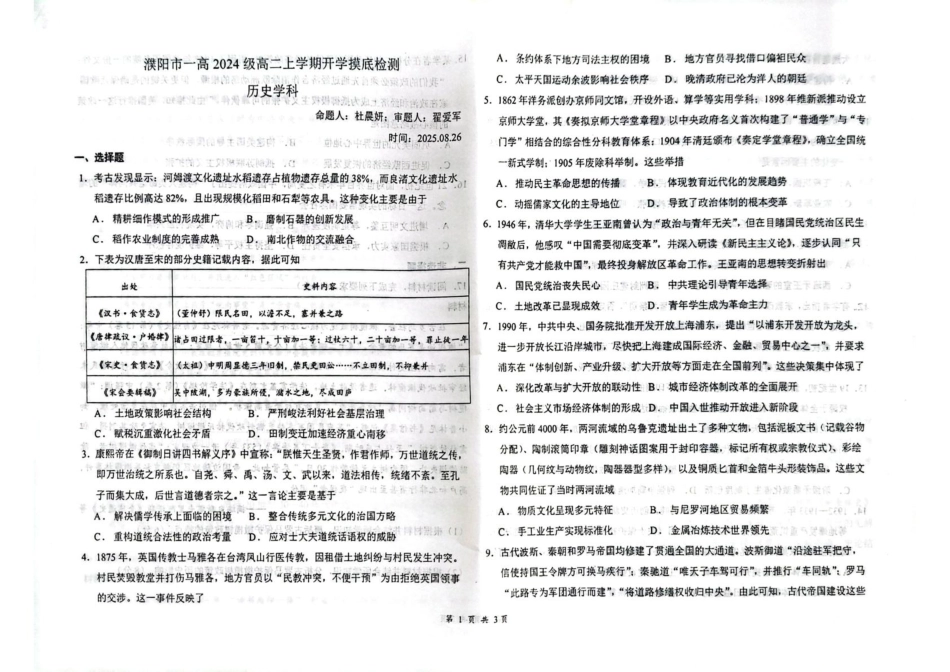 濮阳市一高 2024 级高二上学期开学摸底检测
历史学科
命题人：杜晨妍；审题人：翟爱军
时间：2025.08.26
一、选择题
1. 考古发现显示：河姆渡文化遗址水稻遗存占植物遗存总量的38%，而良渚文化遗址水
稻遗存比例高达 82%，且出现规模化稻田和石犁等农具。这种变化主要是由于
A. 精耕细作模式的形成推广 B. 磨制石器的创新发展
C. 稻作农业制度的完善成熟 D. 南北作物的交流融合
2. 下表为汉唐至宋的部分史籍记载内容，据此可知
出处 史料内容
《汉书·食货志》 （董仲舒）限民名田，以澹不足，塞并兼之路
《唐律疏议·户婚律》 诸占田过限者，一亩笞十，十亩加一等；过杖六十，二十亩加一等，罪止徒一年
《宋史·食货志》 （太祖）申明周显德三年旧制，禁民史田讼……不立田制，不抑兼并
《宋会要辑稿》 吴中陂湖，多为豪族所侵，潴水之地，尽成田庐
A. 土地政策影响社会结构 B. 严刑峻法利好社会基层治理
C. 赋税沉重激化社会矛盾 D. 田制变迁加速经济重心南移
3. 康熙帝在《御制日讲四书解义序》中宣称：“朕惟天生圣贤，作君作师，万世道统之传，
即万世治统之所系也。自尧、舜、禹、汤、文、武以来，道法相传，统绪不紊。至孔
子而集大成，后世言道德者宗之。”这一言论主要是基于
A. 解决儒学传承上面临的困境 B. 整合传统多元文化的治国方略
C. 重构道统合法性的政治考量 D. 应对士大夫道统话语权的威胁
4. 1875 年，英国传教士马雅各在台湾凤山行医传教，因租借土地纠纷与村民发生冲突。
村民焚毁教堂并打伤马雅各，地方官员以“民教冲突，不便干预”为由拒绝英国领事
的交涉。这一事件反映了
A. 条约体系下地方司法主权的困境 B. 地方官员寻找借口偏袒民众
C. 太平天国运动余波影响社会秩序 D. 晚清政府已沦为洋人的朝廷
5. 1862 年洋务派创办京师同文馆，开设外语、算学等实用学科；1898 年维新派推动设立
京师大学堂，其《奏拟京师大学堂章程》以中央政府名义首次构建了“普通学”与“专
门学”相结合的综合性分科教育体系；1904 年清廷颁布《奏定学堂章程》，确立全国统
一新式学制；1905 年废除科举制。这些举措
A. 推动民主革命思想的传播 B. 体现教育近代化的发展趋势
C. 动摇儒家文化的主导地位 D. 导致了政治体制的根本变革
6. 1946 年，清华大学学生王亚南曾认为“政治与青年无关”，但在目睹国民党统治区民生
凋敝后，他感叹“中国需要彻底变革”，并深入研读《新民主主义论》，逐步认同“只
有共产党才能救中国”，最终投身解放区革命工作。王亚南的思想转变折射出
A. 国民党统治丧失民心 B. 中共理论引导青年选择
C. 土地改革已显现成效 D. 青年学生成为革命主力
7. 1990 年，中共中央、国务院批准开发开放上海浦东，提出“以浦东开发开放为龙头，
进一步开放长江沿岸城市，尽快把上海建成国际经济、金融、贸易中心之一”，并要求
浦东在“体制创新、产业升级、扩大开放等方面走在全国前列”。这些决策集中体现了
A. 深化改革与扩大开放的联动性 B. 城市经济体制改革的全面展开
C. 社会主义市场经济体制的形成 D. 中国入世推动开放进入新阶段
8. 约公元前 4000 年，两河流域的乌鲁克遗址出土了多种文物，包括泥板文书（记载谷物
分配）、陶制滚筒印章（雕刻神话图案用于封印容器，标记所有权或宗教仪式）、彩绘
陶器（几何纹与动物纹，陶器器型多样），以及铜质匕首和金箔牛头形装饰品。这些文
物共同佐证了当时两河流域
A. 物质文化呈现多元特征 B. 与尼罗河地区贸易频繁
C. 手工业生产实现标准化 D. 金属冶炼技术世界领先
9. 古代波斯、秦朝和罗马帝国均修建了贯通全国的大通道。波斯御道“沿途驻军把守，
信使持国王令牌方可换马疾行”；秦驰道“唯天子车驾可行”，并推行“车同轨”；罗马
“此路专为军团通行而建”，“将道路修缮权收归中央”。由此可知，古代帝国建设这些
第 1 页 共 3 页